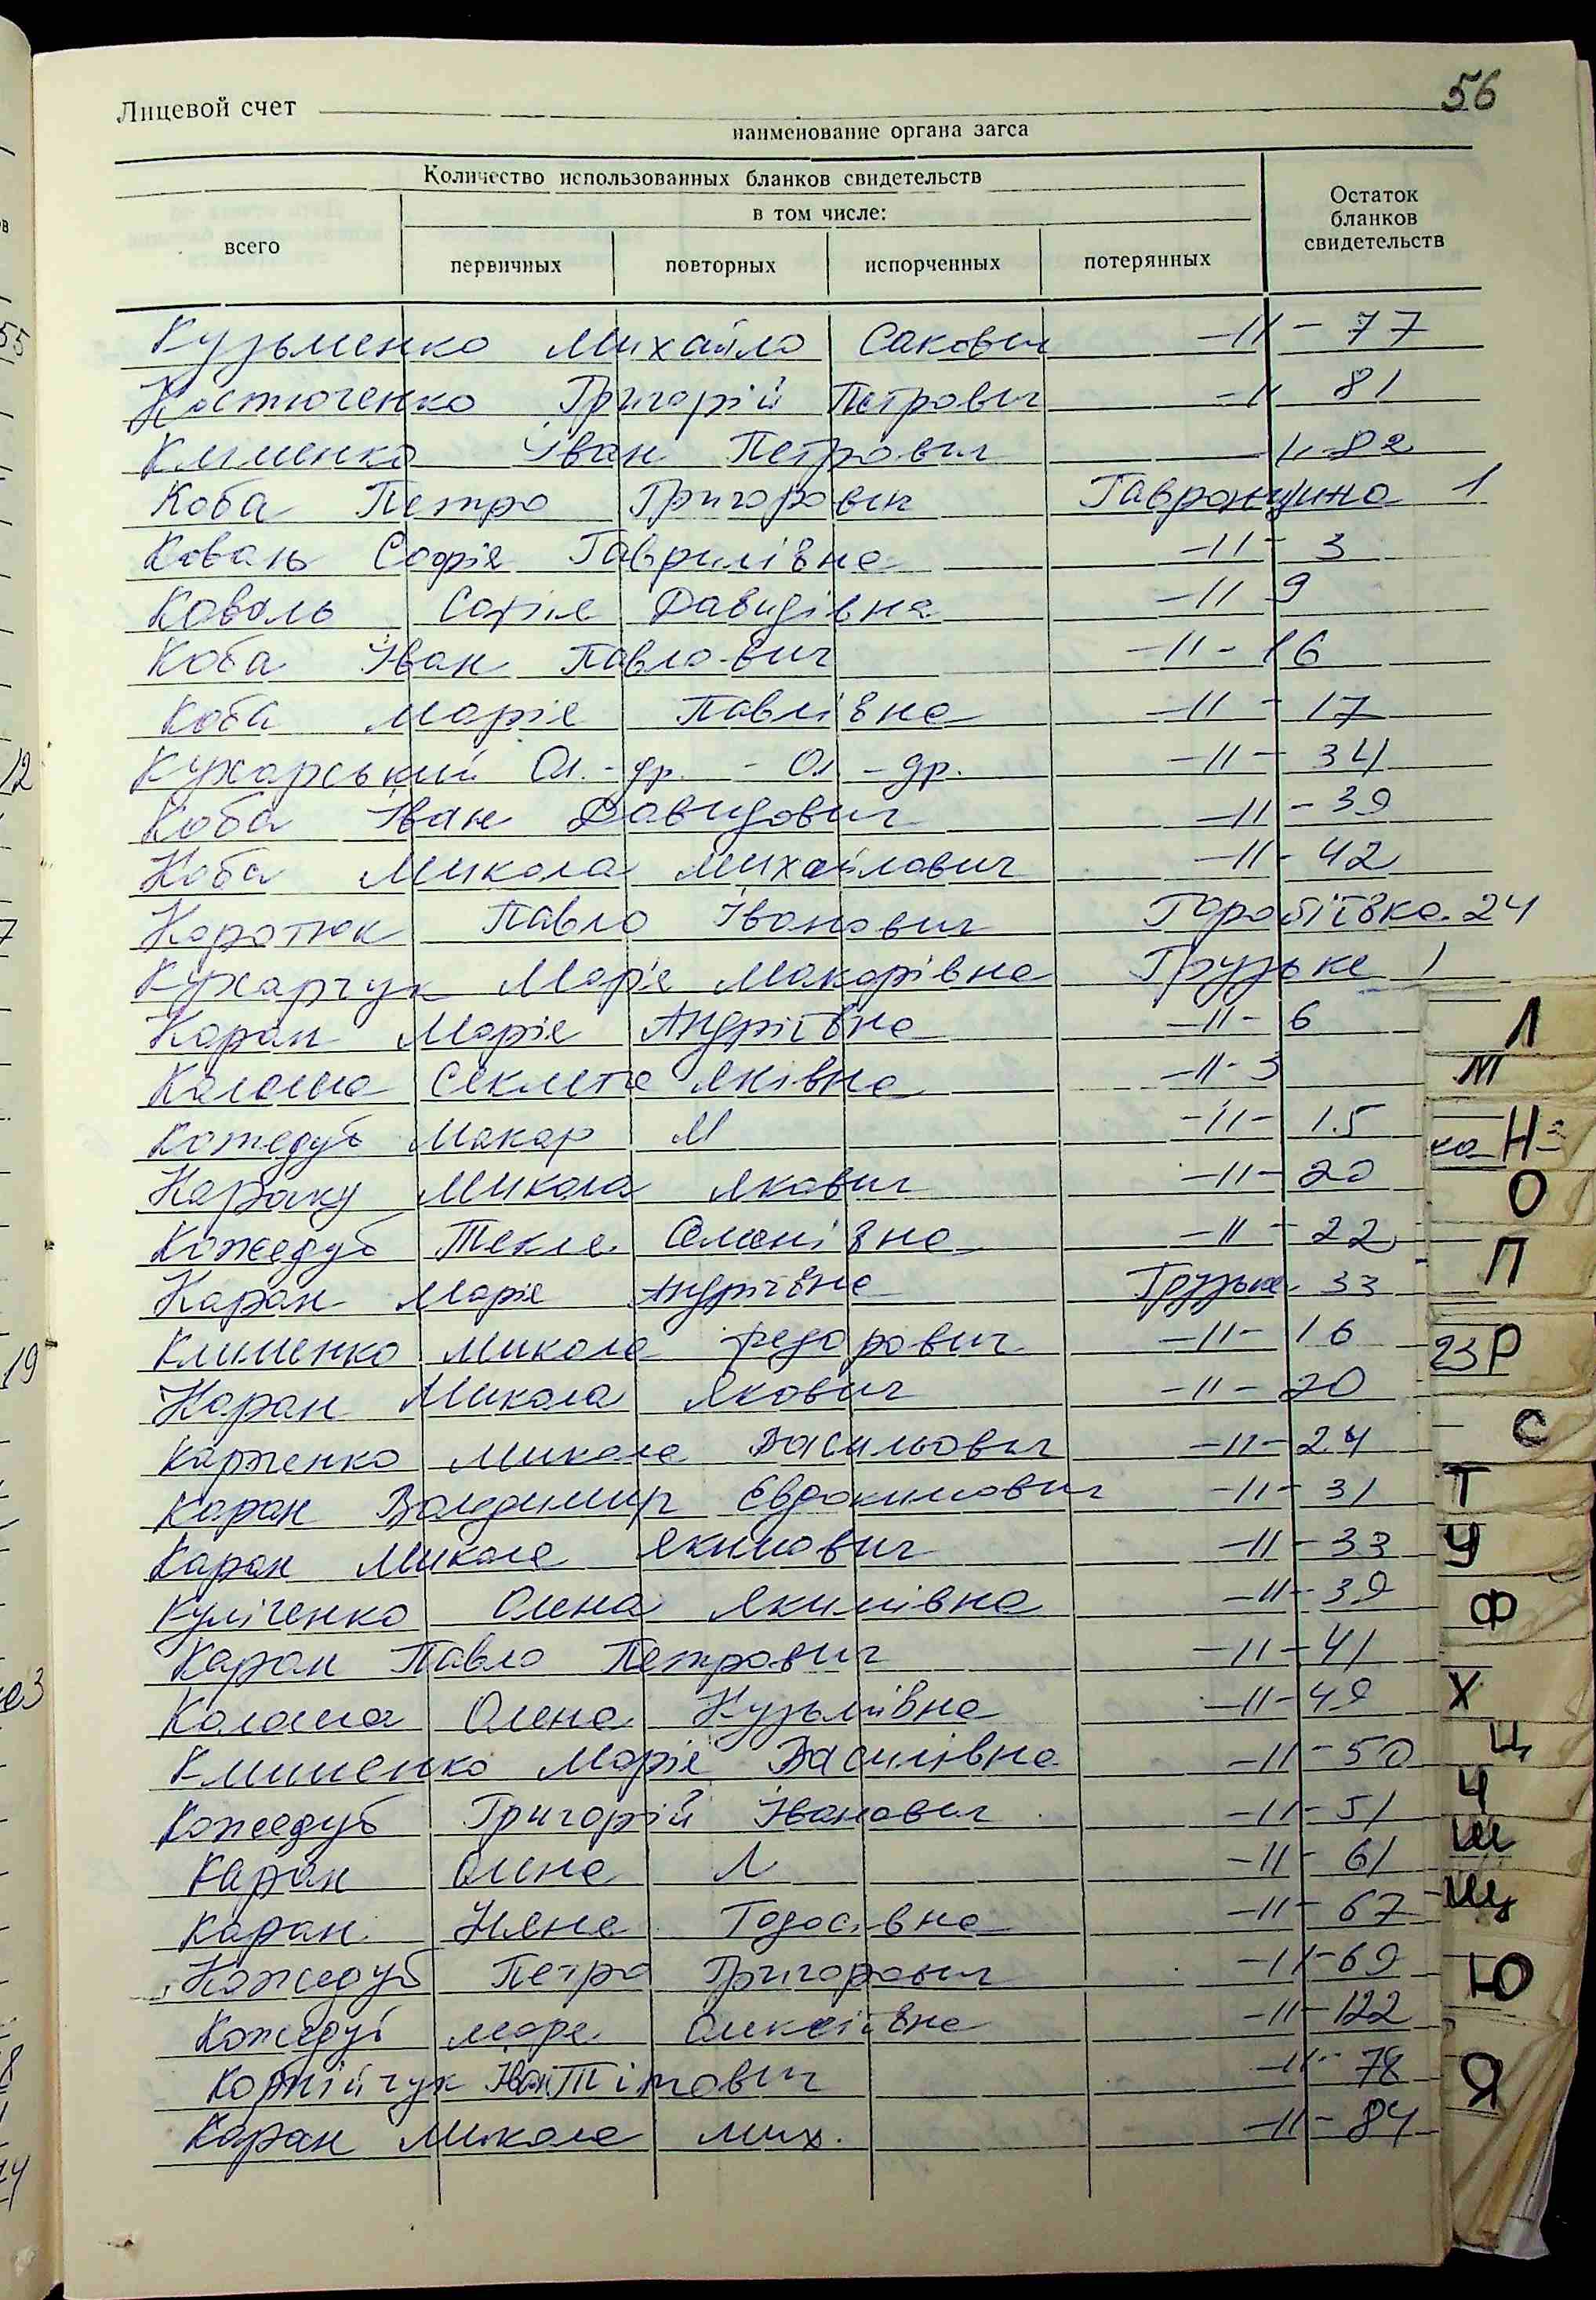 56
Лицевой счет
наименование органа загса
Количество использованных бланков свидетельств
Остаток бланков свидетельств
в том числе:
всего
первичных повторных испорченных потерянных
Кузьменко Михайло Сакович -11- 77
Костюченко Григорій Петрович -11 81
Клименко Іван Петрович 11 82
Коба Петро Григорович Гавронщина 1
Коваль Софія Гаврилівна -11- 3
Коваль Софія Давидівна -11 9
Коба Іван Павлович -11- 16
Коба Марія Павлівна -11- 17
Кухарський Ол.-др. - Ол-др. -11- 34
Коба Іван Давидович -11- 39
Коба Микола Михайлович -11- 42
Коротюк Павло Іванович Горобіївка 24
Кухарчук Мар'я Макарівна Грузьке 1
Каран Марія Андріївна -11- 6
Калаша Секлета Яківна -11- 3
Кожедуб Макар М -11- 15
Микола Якович -11- 20
Кожедуб Текля -11- 22
Каран Марія Андріївна Грузьке 33
Клименко Микола Федорович -11- 16
Каран Микола Якович -11- 20
Микола Васильович -11- 24
Каран Володимир Євдокимович -11- 31
Каран Микола Якимович -11- 33
Куліченко Олена Якимівна -11- 39
Каран Павло Петрович -11- 41
Калаша Олена Кузьмівна -11- 49
Клименко Марія Василівна -11- 50
Кожедуб Григорій Іванович -11- 51
Каран Олена Л -11- 61
Каран Уляна Тодосівна -11- 67
Кожедуб Петро Григорович -11- 69
Кожедуб Марія Олексіївна -11- 122
Корнійчук Іван Тітович -11- 78
Каран Микола Мих. -11- 84
Л
М
Н
О
П
Р
С
Т
У
Ф
Х
Ц
Ч
Ш
Щ
Ю
Я